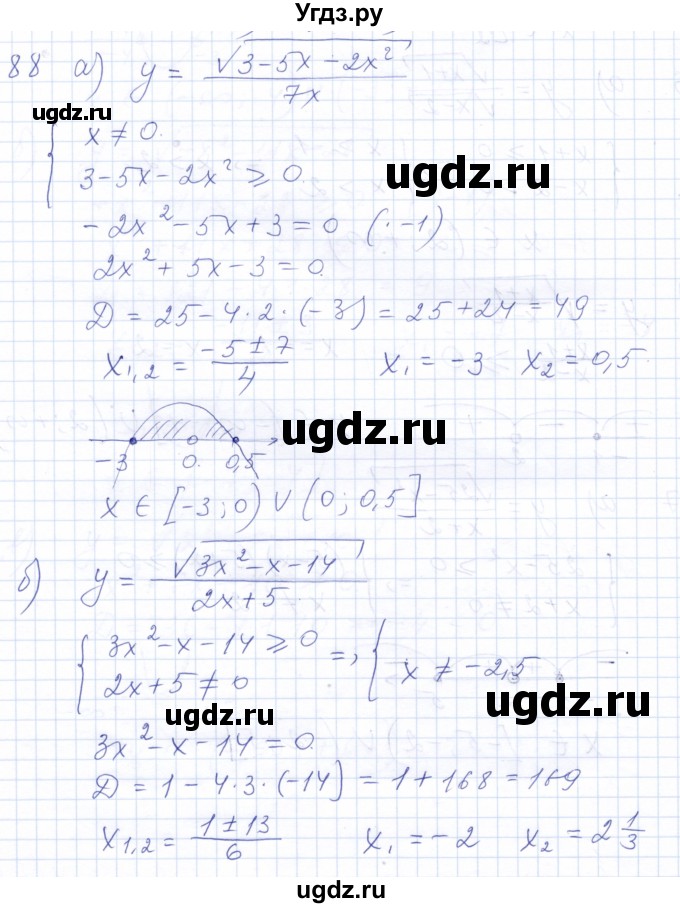 Угдз.ру
88 а) y = √(3-5x-2x²) / 7x
ugdz.ru
{ x ≠ 0.
3-5x-2x² ⩾ 0.
ugdz.ru
-2x²-5x+3=0 (·-1)
2x²+5x-3=0.
Д = 25-4·2·(-3) = 25+24 = 49
x₁,₂ = (-5±7)/4 x₁ = -3 x₂ = 0,5
ugdz.ru
-3 0. 0,5
x ∈ [-3;0) ∨ (0; 0,5]
б) y = √(3x²-x-14) / 2x+5
{ 3x²-x-14 ⩾ 0
2x+5 ≠ 0 =, { x ≠ -2,5
ugdz.ru
ugdz.ru
3x²-x-14=0.
Д = 1-4·3·(-14) = 1+168 = 169
x₁,₂ = (1±13)/6 x₁ = -2 x₂ = 2 1/3
ugdz.ru